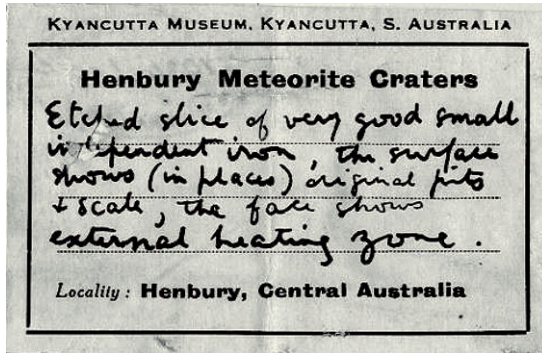 KYANCUTTA MUSEUM, KYANCUTTA, S. AUSTRALIA
Henbury Meteorite Craters
Etched slice of very good small
independent iron, the surface
shows (in places) original pits
& scale, the face shows
external heating zone.
Locality: Henbury, Central Australia